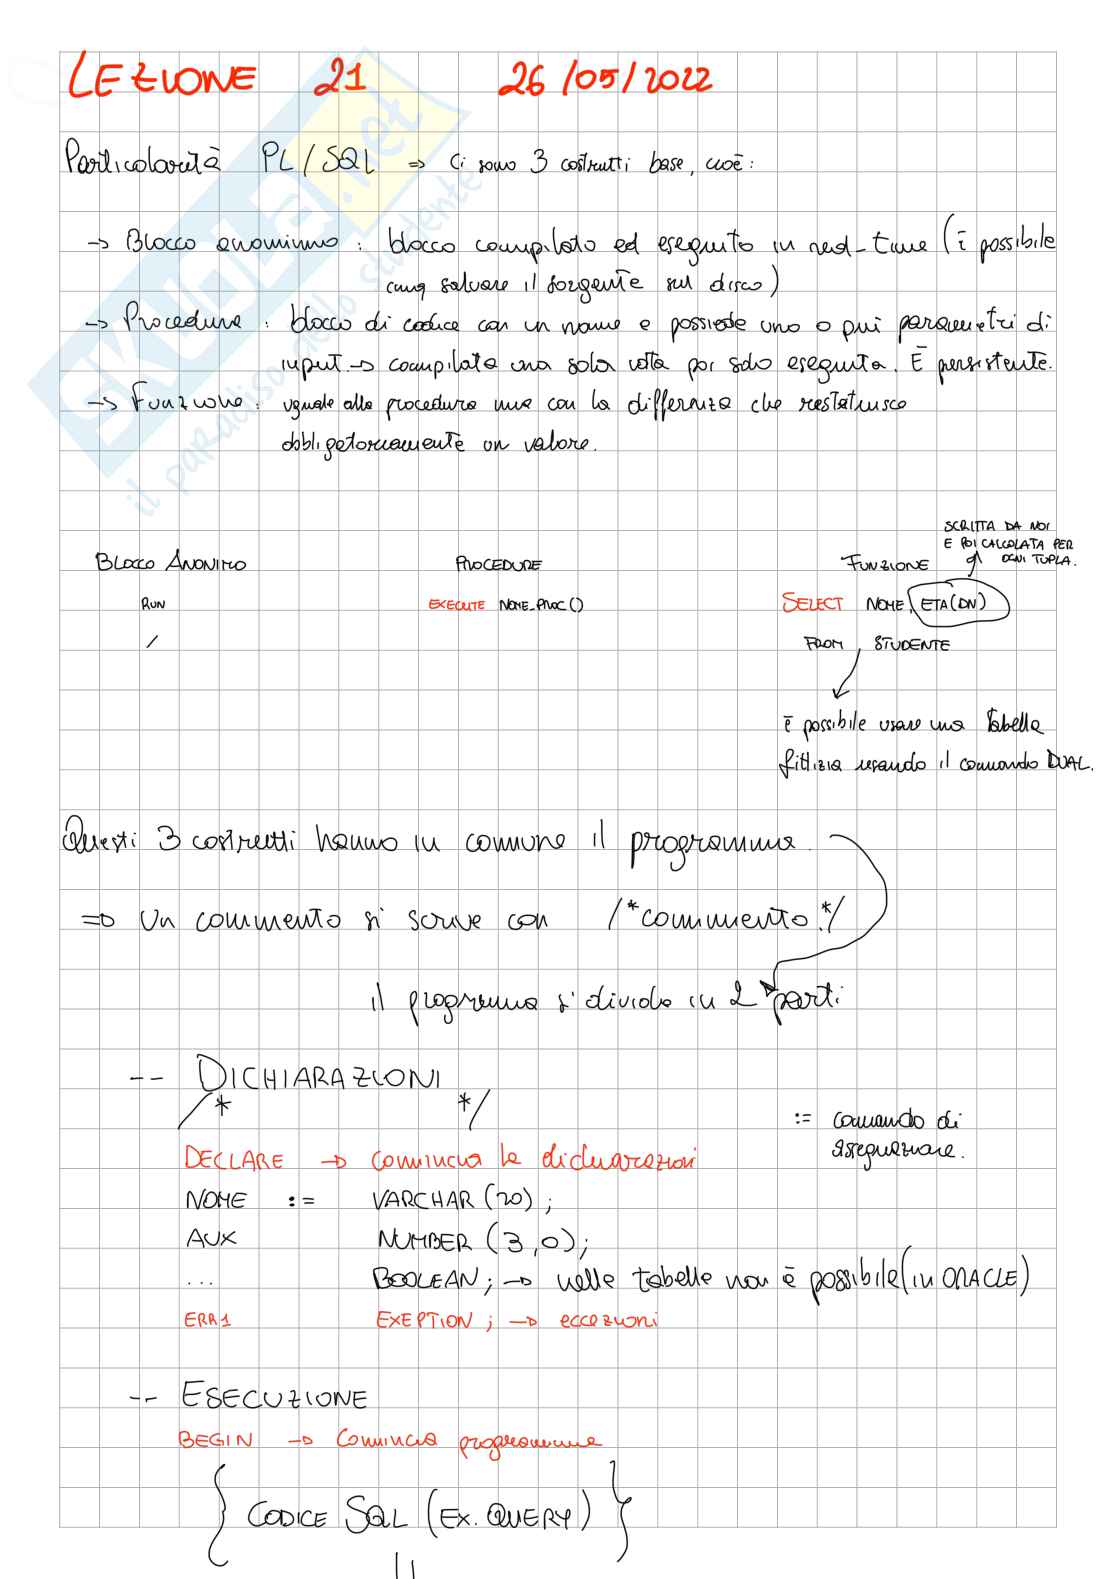 LEZIONE 21 26/05/2022
Particolarità PL/SQL => Ci sono 3 costrutti base, cioè:
-> Blocco anonimno : blocco compilato ed eseguito in real-time (è possibile
cmq salvare il sorgente sul disco)
-> Procedura : blocco di codice con un nome e possiede uno o più parametri di
input -> compilata una sola volta poi solo eseguita. È persistente.
-> Funzione : uguale alla procedura ma con la differenza che restituisce
obbligatoriamente un valore.
SCRITTA DA NOI
E POI CALCOLATA PER
OGNI TUPLA.
BLOCCO ANONIMO PROCEDURE FUNZIONE
RUN EXECUTE NOME_PROC() SELECT NOME, ETA(DN)
/ FROM STUDENTE
è possibile usare una tabella
fittizia usando il comando DUAL.
Questi 3 costrutti hanno in comune il programma.
=> Un commento si scrive con /*commento.*/
il programma si divide in 2 parti
-- DICHIARAZIONI
/* */
:= comando di
assegnazione.
DECLARE -> comincia le dichiarazioni
NOME := VARCHAR (20);
AUX NUMBER (3,0);
... BOOLEAN; -> nelle tabelle non è possibile (in ORACLE)
ERR1 EXEPTION; -> eccezioni
-- ESECUZIONE
BEGIN -> Comincia programma
{ CODICE SQL (EX. QUERY) }
SKUOLA.net
il paradiso dello studente